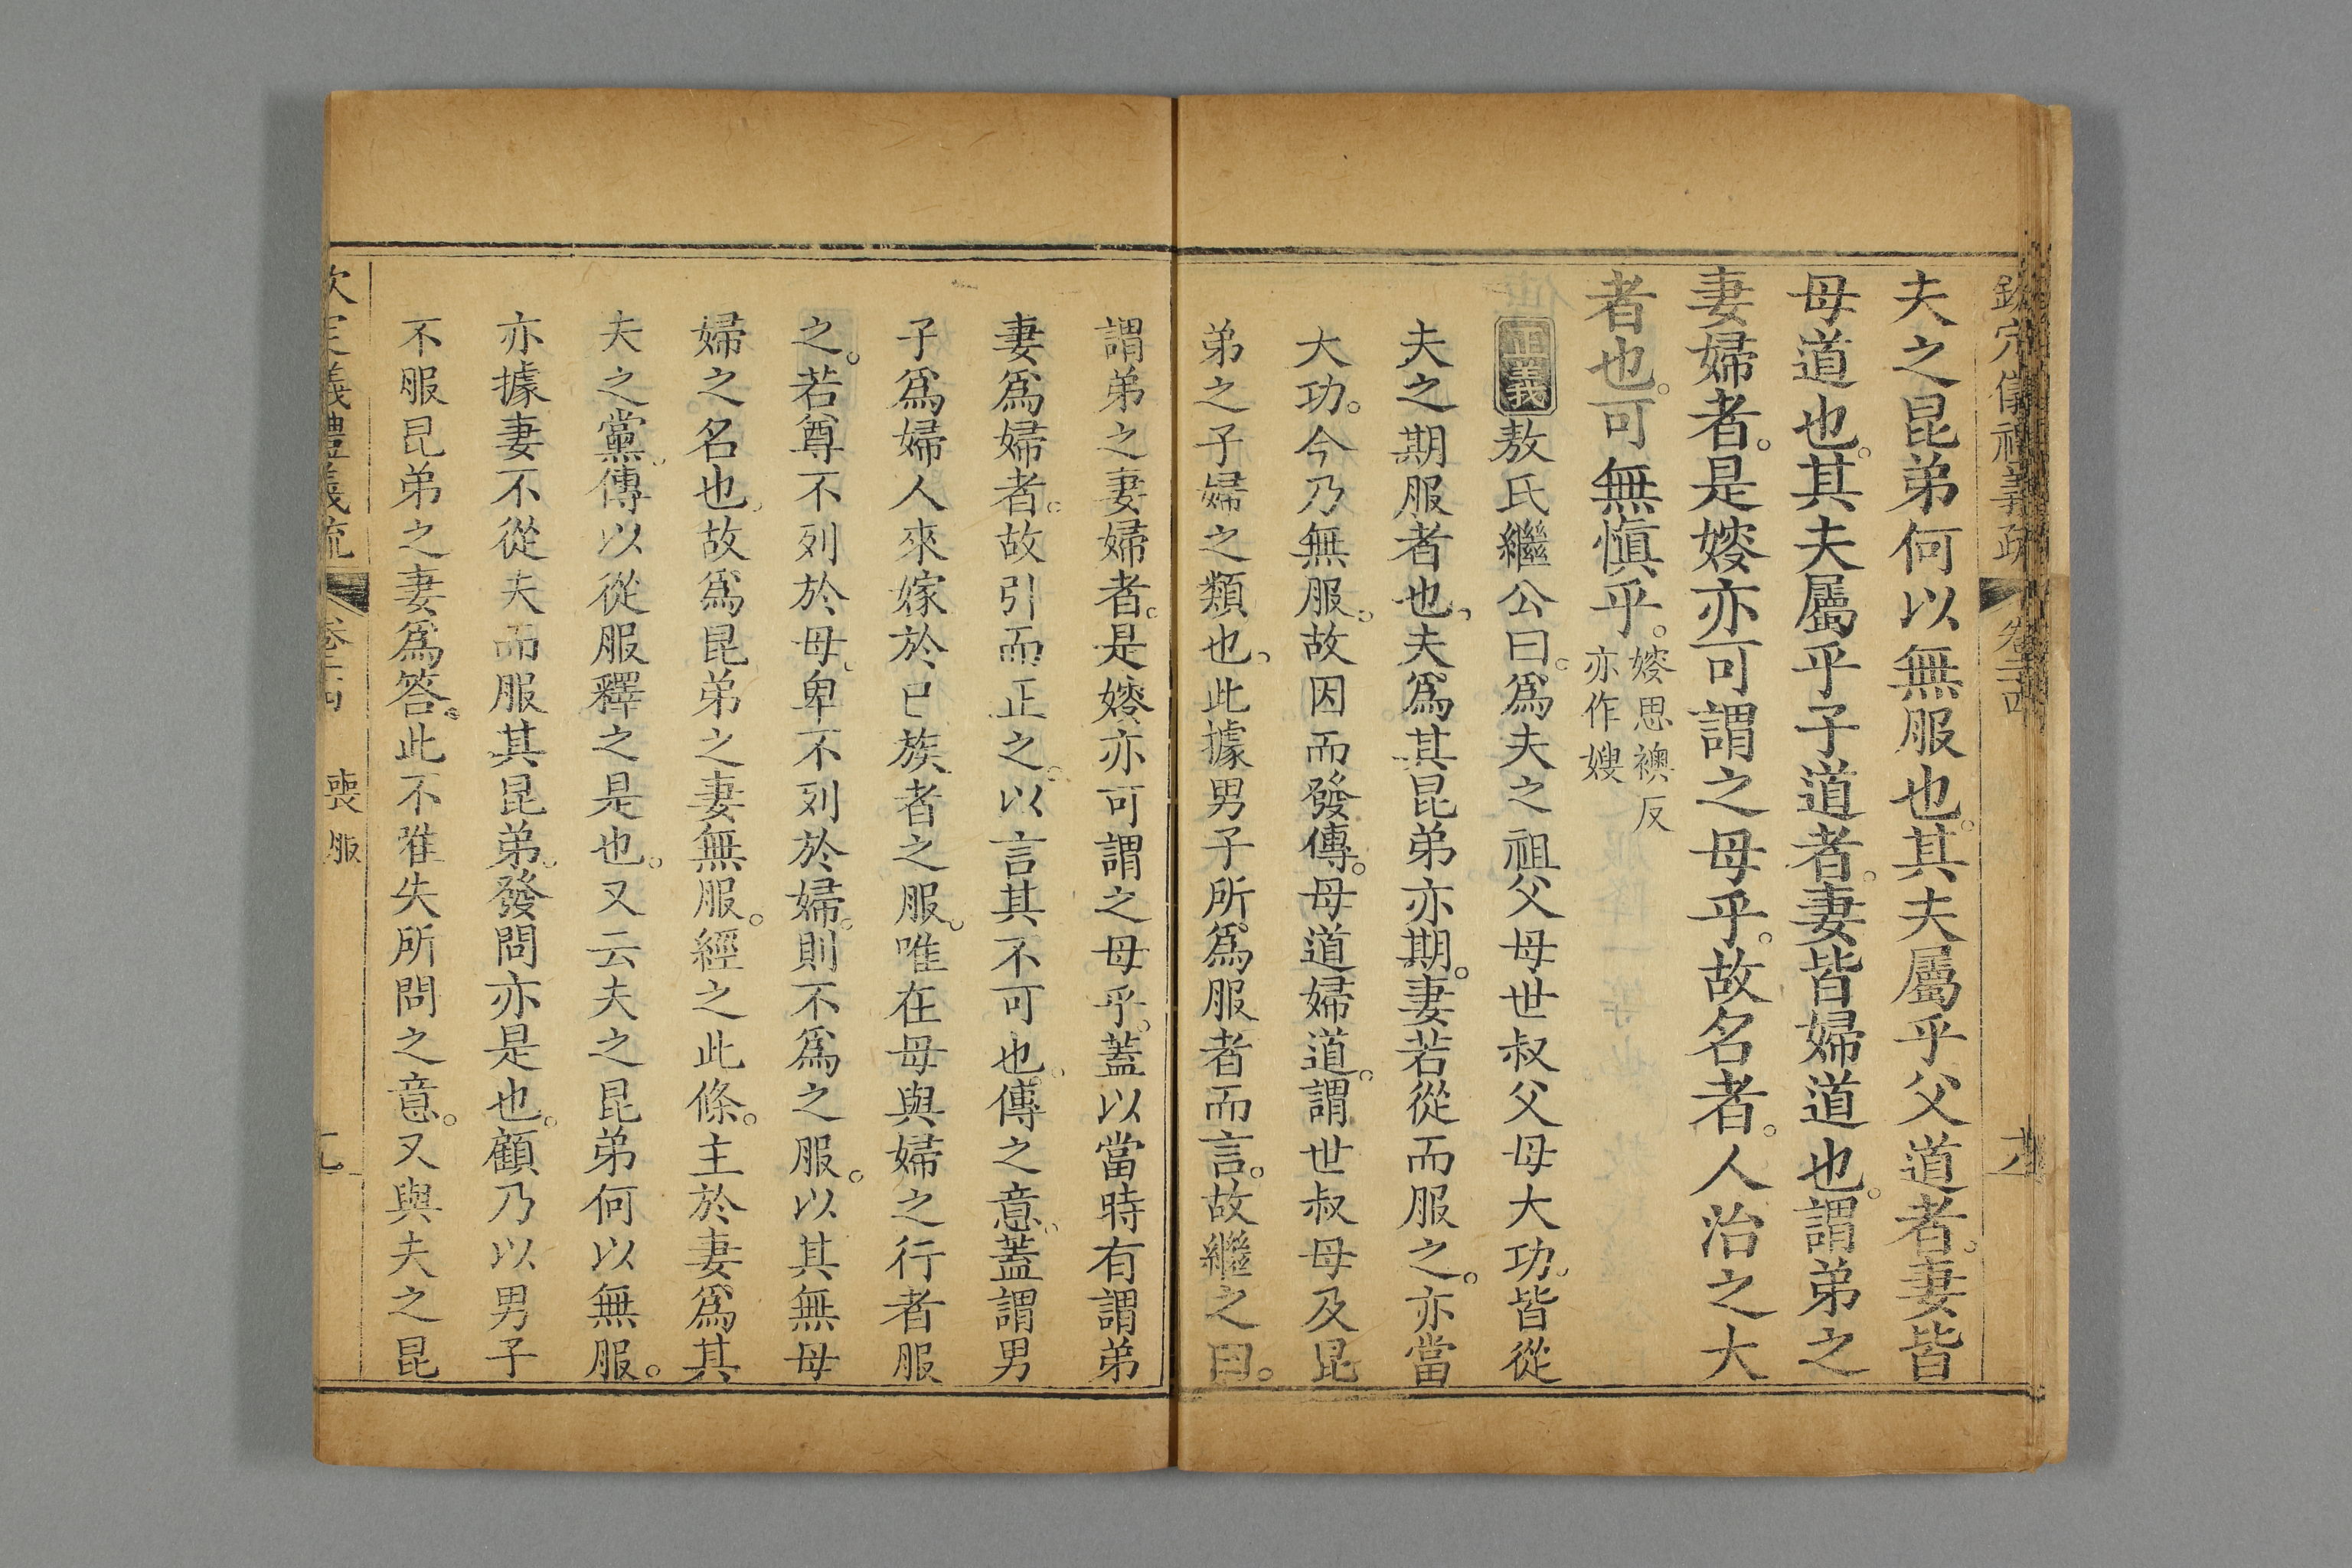 欽定儀禮義疏　卷二十四
夫之昆弟何以無服也。其夫屬乎父道者。妻皆
母道也。其夫屬乎子道者。妻皆婦道也。謂弟之
妻婦者。是㛮亦可謂之母乎。故名者。人治之大
者也。可無慎乎。㛮思襖反亦作嫂
正義敖氏繼公曰。爲夫之祖父母世叔父母大功、皆從
夫之期服者也、夫爲其昆弟亦期。妻若從而服之。亦當
大功。今乃無服。故因而發傳。母道婦道。謂世叔母及昆
弟之子婦之類也、此據男子所爲服者而言。故繼之曰。
謂弟之妻婦者。是㛮亦可謂之母乎。蓋以當時有謂弟
妻爲婦者。故引而正之。以言其不可也。傳之意、蓋謂男
子爲婦人來嫁於己族者之服。唯在母與婦之行者服
之。若尊不列於母、卑不列於婦。則不爲之服。以其無母
婦之名也、故爲昆弟之妻無服。經之此條。主於妻爲其
夫之黨、傳以從服釋之是也。又云夫之昆弟何以無服。
亦據妻不從夫而服其昆弟。發問亦是也。顧乃以男子
不服昆弟之妻爲答。此不惟失所問之意。又與夫之昆
欽定儀禮義疏　卷二十四　喪服